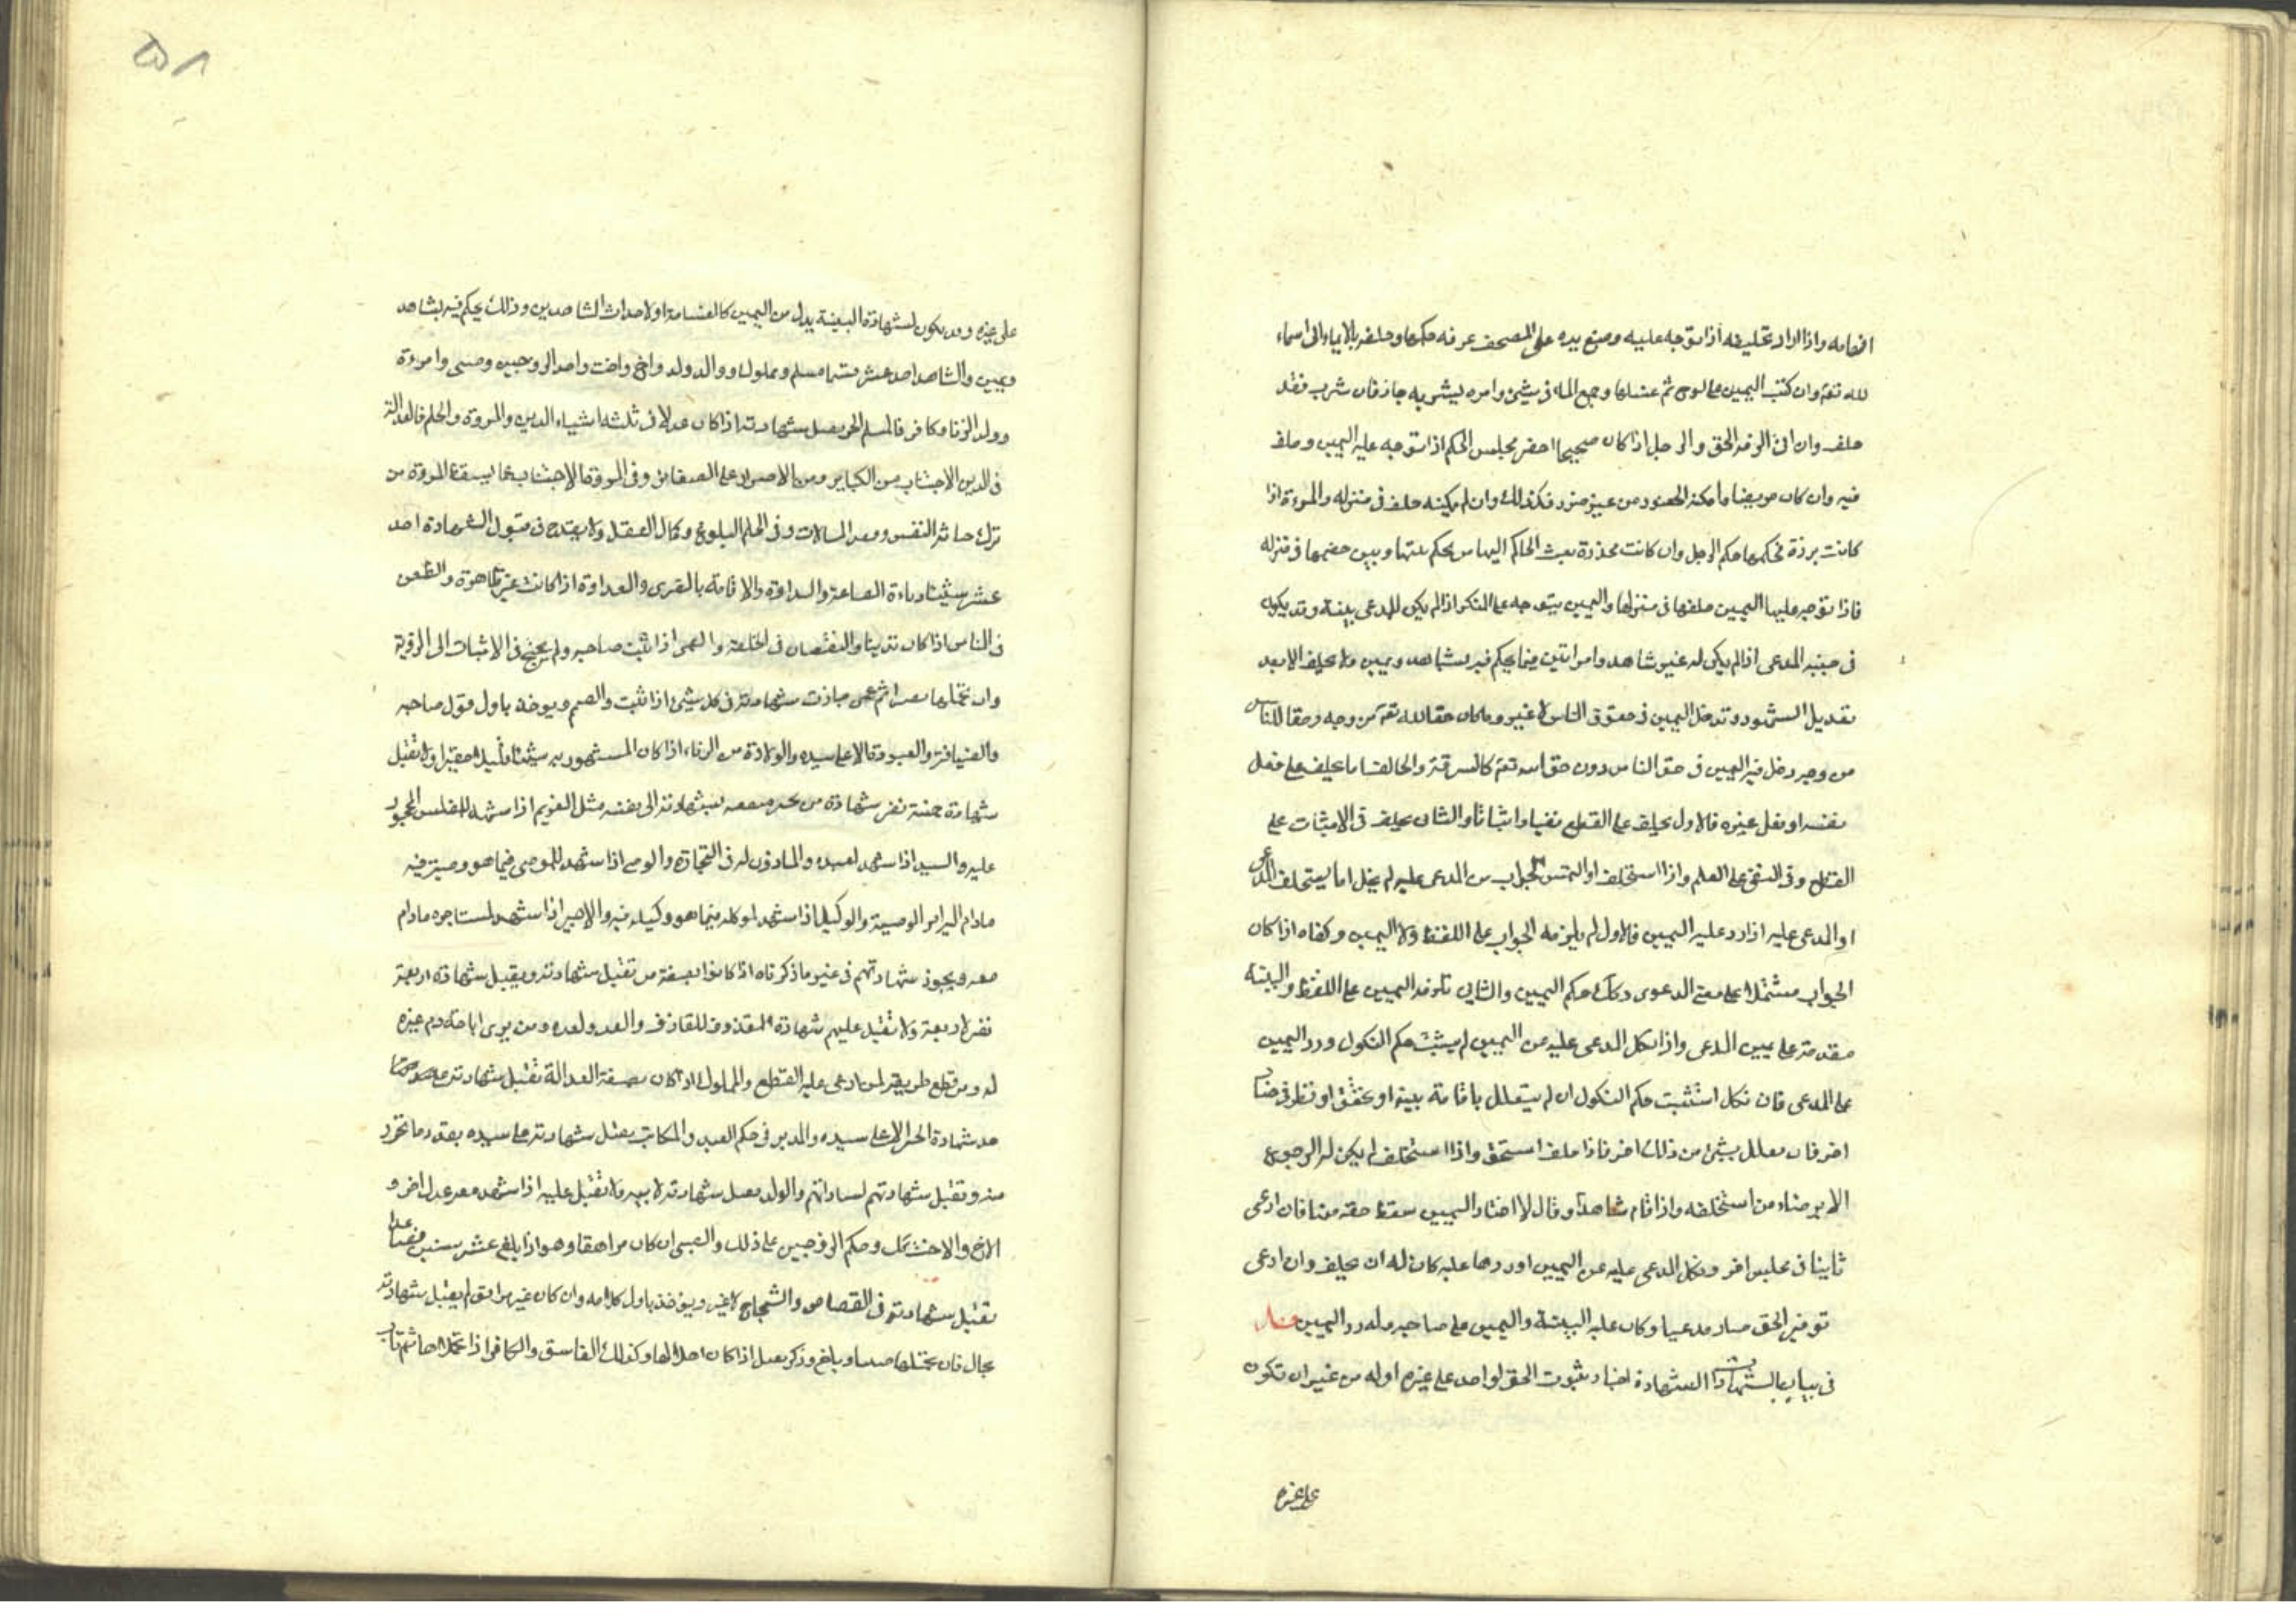 افهامه واذا اراد تحليفه اذا توجه عليه وضع يده على المصحف عرفه حكمها وحلفه بالايماء الى اسماء
لله تعم وان كتب اليمين على لوح ثم غسلها وجمع الماء في شيئ وامره ليشربه جاز فان شرب فقد
حلف وان ابى الزمه الحق والرجل اذا كان صحيحا احضر مجلس الحكم اذا توجه عليه اليمين وحلف
فيه وان كان مريضا وامكنه الحضور من غير ضرر فكذلك وان لم يمكنه حلف في منزله والمرءة اذا
كانت برزة فحكمها حكم الرجل وان كانت مخدرة بعث الحاكم اليها من يحكم بينها وبين خصمها في منزله
فاذا توجه عليها اليمين حلفها في منزلها واليمين يتوجه على المنكر اذا لم يكن للمدعى بينة وقد يكون
في جنبه المدعى اذا لم يكن له غير شاهد وامراتين فيما يحكم فيه بشاهد ويمين ولا يحلف الا بعد
تعديل الشهود وتدخل اليمين في حقوق الناس لا غير وما كان حقا لله تعم من وجه وحقا للناس
من وجه دخل فيه اليمين في حق الناس دون حق الله تعم كالسرقة والحالف اما يحلف على فعل
نفسه او فعل غيره فالاول يحلف على القطع نفيا واثباتا والثانى يحلف في الاثبات على
القطع وفي النفي على العلم واذا استحلف او التمس الجواب من المدعى عليه لم يخل اما يستحلف المدعى
او المدعى عليه اذا رد عليه اليمين فالاول لم يلزمه الجواب على اللفظ ولا اليمين وكفاه اذا كان
الجواب مشتملا على معنى الدعوى وكذلك حكم اليمين والثانى تلزمه اليمين على اللفظ والبينة
مقدمة على يمين المدعى واذا نكل المدعى عليه عن اليمين لم يثبت حكم النكول ورد اليمين
على المدعى فان نكل استثبت حكم النكول ان لم يتعلل باقامة بينة او تحقق او نظر في حساب
اخر فان تعلل بشيئ من ذلك اخر فاذا حلف استحق واذا استحلف لم يكن له الرجوع
الا برضاء من استحلفه واذا اقام شاهدا وقال لا اختار اليمين سقط حقه منها فان ادعى
ثانيا في مجلس اخر ونكل المدعى عليه عن اليمين او ردها عليه كان له ان يحلف وان ادعى
توفير الحق صار مدعيا وكان عليه البينة واليمين على صاحبه وله رد اليمين فصل
في بيان الشهادات الشهادة اخبار بثبوت الحق لواحد على غيره او له من غير ان تكون
على غيره
على غيره وقد يكون لشهادة البينة بدل من اليمين كالقسامة او لاحداث الشاهدين وذلك يحكم فيه بشاهد
ويمين والشاهد احد عشر قسما مسلم ومملوك ووالد وولد واخ واخت واحد الزوجين وصبى وامرءة
وولد الزنا وكافر فالمسلم الحر يقبل شهادته اذا كان عدلا في ثلثة اشياء الدين والمروة والحلم فالعدالة
في الدين الاجتناب من الكباير ومن الاصرار على الصغاير وفي المروة الاجتناب عما يسقط المروة من
ترك صيانة النفس وفقد المبالات وفي الحلم البلوغ وكمال العقل ولا يقدح في قبول الشهادة احد
عشر شيئا دناءة الصناعة والبداوة والاقامة بالقرى والعداوة اذا كانت غير ظاهرة والطعن
في الناس اذا كان تدينا والنقصان في الخلقة والعمى اذا اثبت صاحبه ولم يحتج في الاثبات الى الرؤية
وان تحملها بصيرا ثم عمى جازت شهادته في كل شيئ اذا اثبت والصم ويوخذ باول قول صاحبه
والضيافة والعبودة الا على سيده والولادة من الزناء اذا كان المشهود به شيئا قليلا حقيرا ولا تقبل
شهادة خمسة نفر شهادة من يجر منفعه بشهادته الى نفسه مثل الغريم اذا شهد للمفلس المحجور
عليه والسيد اذا شهد لعبده والماذون له في التجارة والوصى اذا شهد للموصى فيما هو وصيته فيه
مادام اليه امر الوصية والوكيل اذا شهد لموكله فيما هو وكيله فيه والاجير اذا شهد لمستاجره مادام
معه ويجوز شهادتهم في غير ما ذكرناه اذا كانوا بصفة من تقبل شهادته ويقبل شهادة اربعة
نفر لاربعة ولا تقبل عليهم شهادة المقذوف للقاذف والعدو لعدوه ومن يرى اباحة دم غيره
له ومن قطع طريقه لمن ادعى عليه القطع والمملوك اذا كان بصفة العدالة تقبل شهادته على
حد شهادة الحر الا على سيده والمدبر في حكم العبد والمكاتب يقبل شهادته على سيده بقدر ما تحرر
منه وتقبل شهادتهم لساداتهم والولد يقبل شهادته لابيه ولا تقبل عليه اذا شهد معه عدل اخر و
الاخ والاخت كل وحكم الزوجين على ذلك والصبى ان كان مراهقا وهو اذا بلغ عشر سنين فصاعدا
تقبل شهادته في القصاص والشجاج لا غير ويوخذ باول كلامه وان كان غير مراهق لم يقبل شهادته
بحال فان تحملها صبيا وبلغ وذكر يقبل اذا كان اهلا لها وكذلك الفاسق والكافر اذا تحملاها ثم تاب